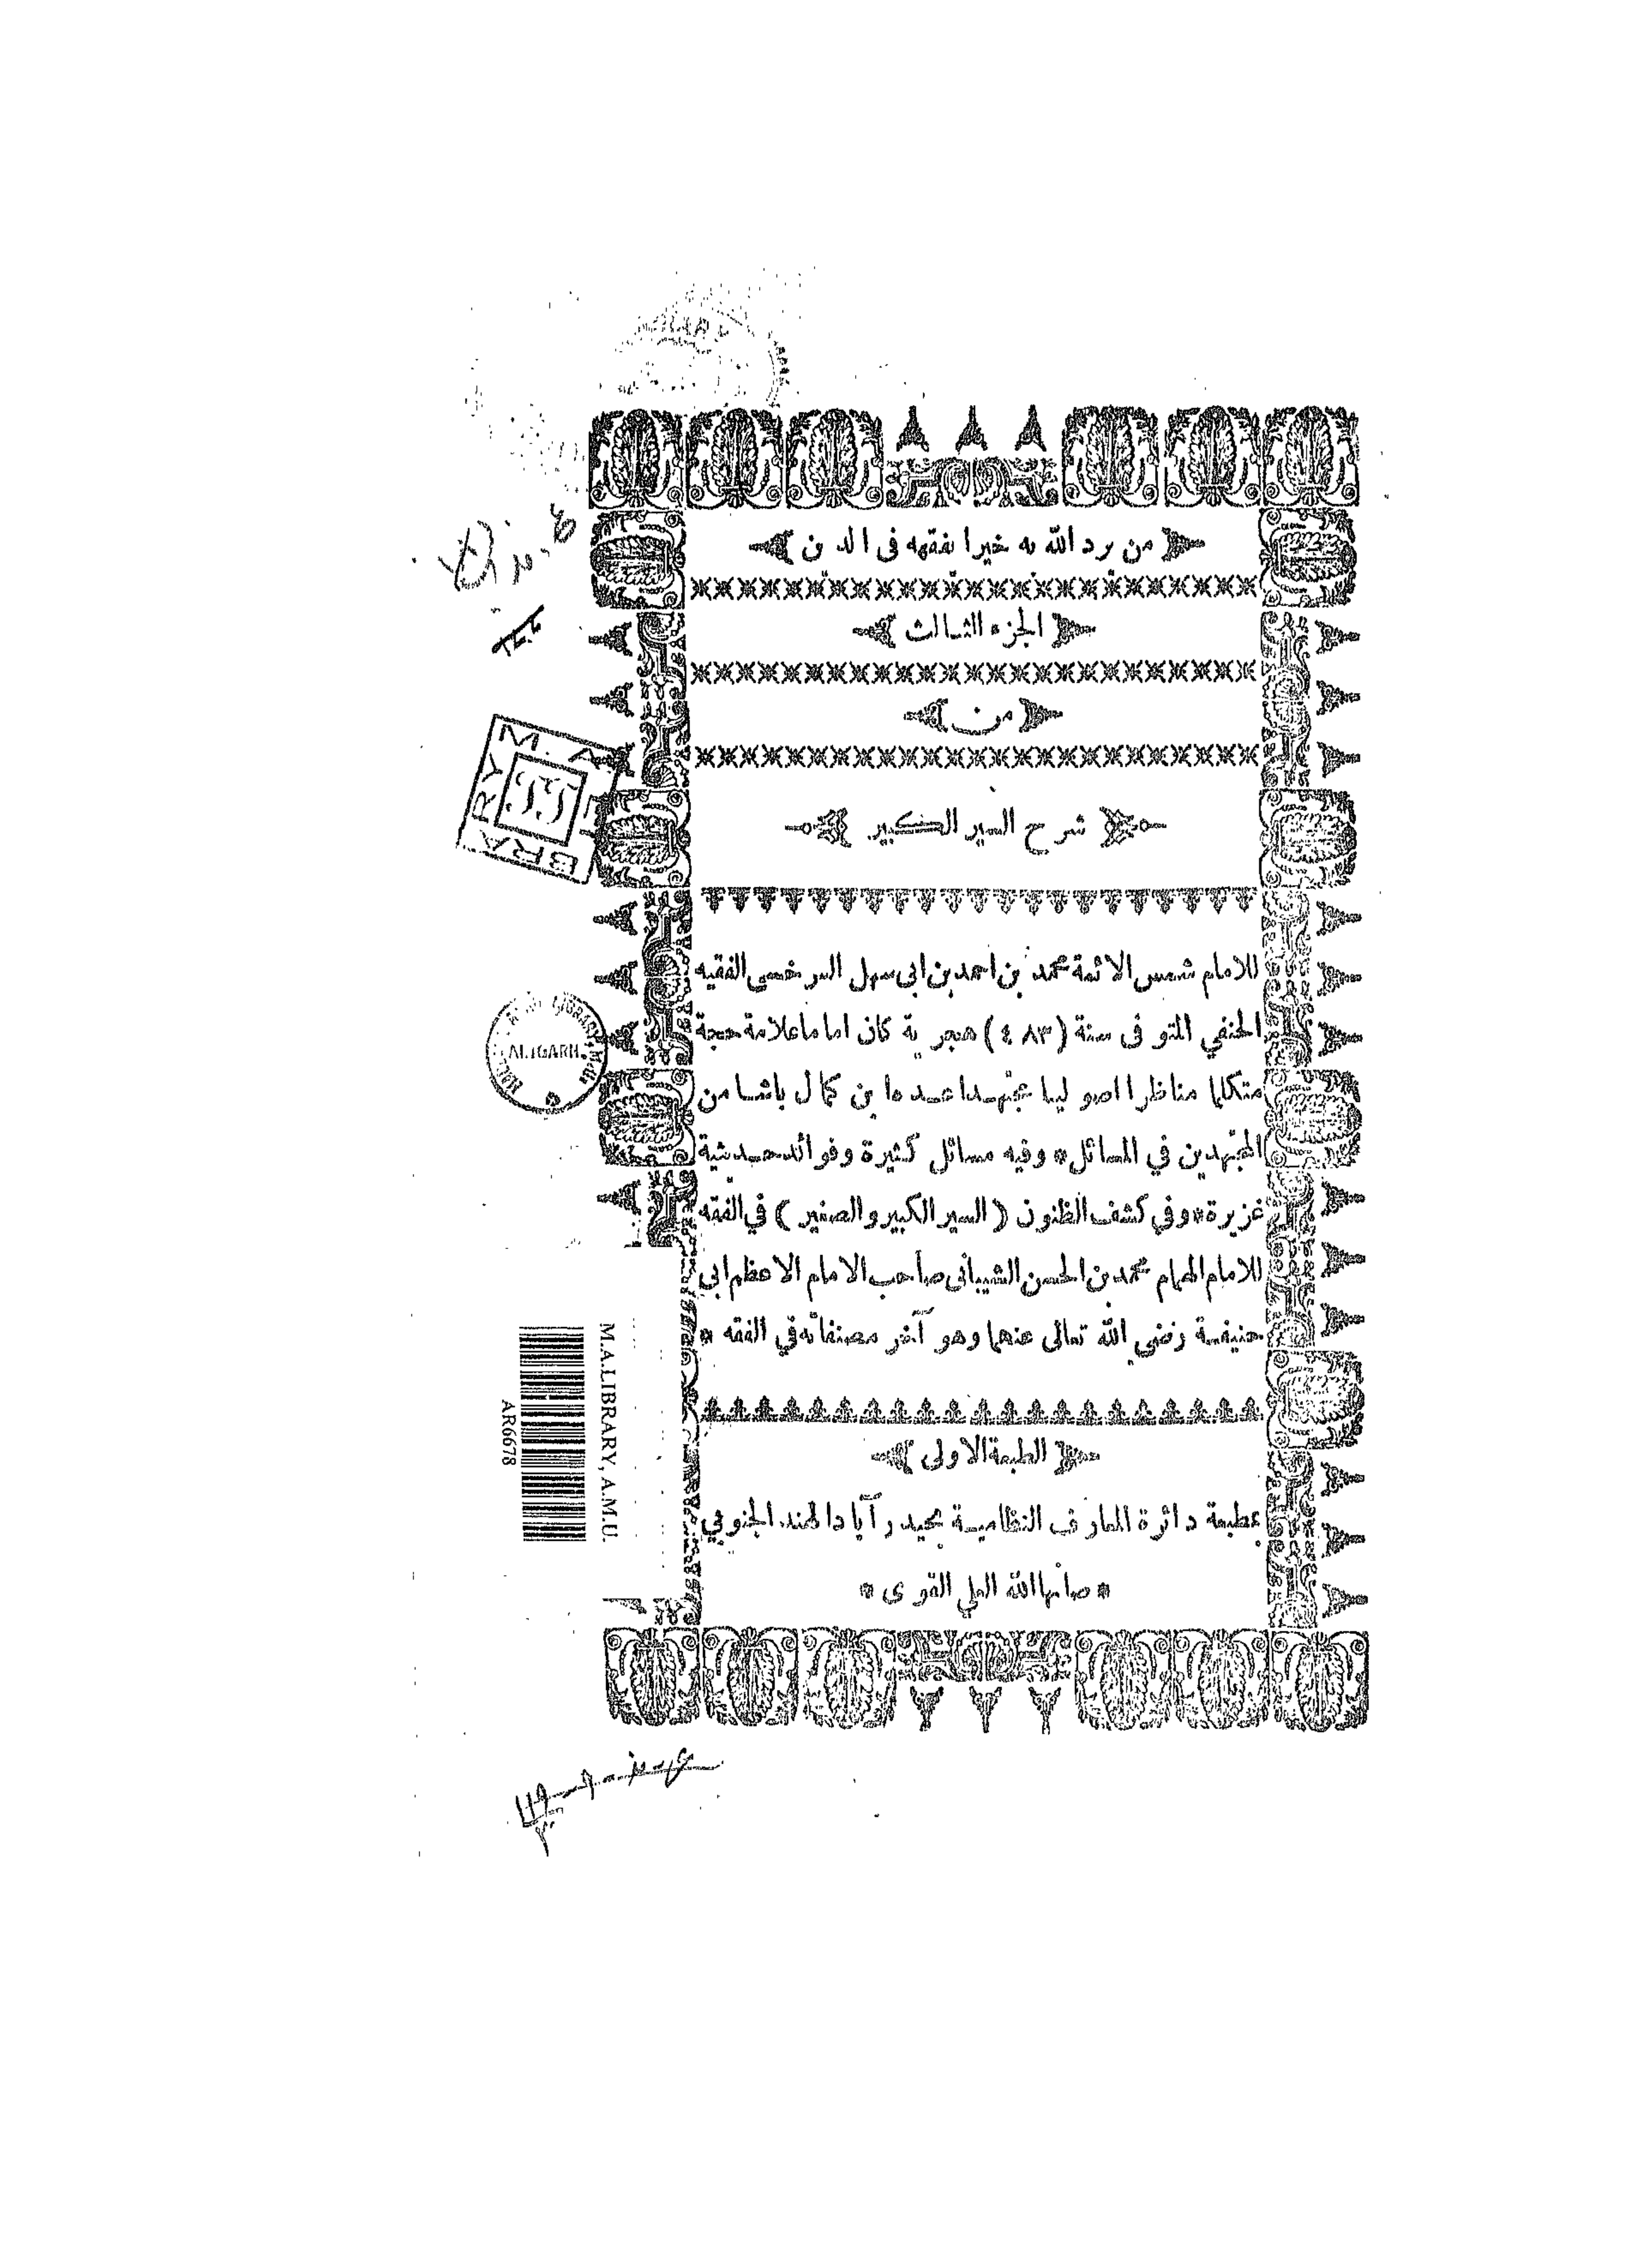 من يرد الله به خيرا يفقهه فى الدين
الجزء الثالث
من
شرح السير الكبير
للامام شمس الائمة محمد بن احمد بن ابى سهل السرخسى الفقيه
الحنفي المتوفى سنة (٤٨٣) هجرية كان اماما علامة حجة
متكلما مناظرا اصوليا مجتهدا عده ابن كمال باشا من
المجتهدين في المسائل * وفيه مسائل كثيرة وفوائد حديثية
غزيرة * وفي كشف الظنون (السير الكبير والصغير) في الفقه
للامام الهمام محمد بن الحسن الشيبانى صاحب الامام الاعظم ابى
حنيفة رضى الله تعالى عنهما وهو آخر مصنفاته في الفقه *
الطبعة الاولى
بمطبعة دائرة المعارف النظامية بحيدر آباد الهند الجنوبي
* صانها الله العلي القوى *
M. A. LIBRARY
ALIGARH.
M.A.LIBRARY, A.M.U.
AR6678